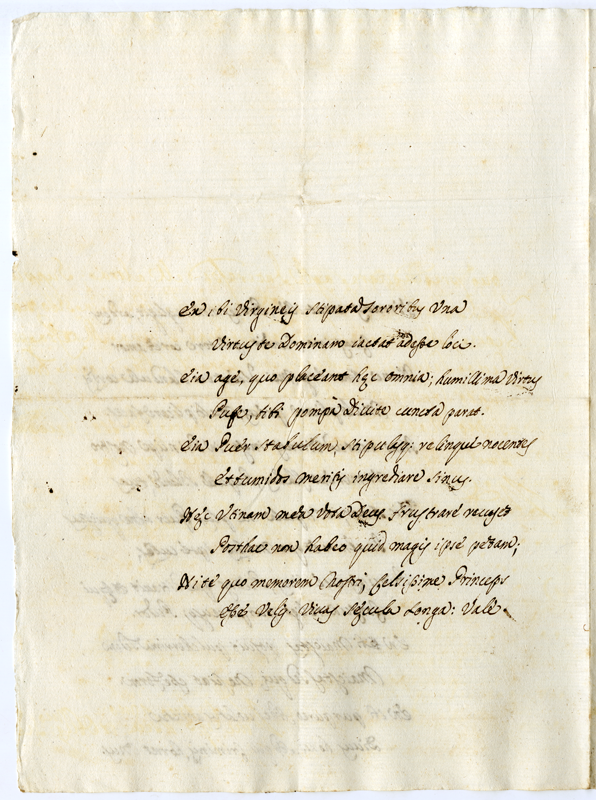 En ibi Virgineis stipata sororibus Una
Virtus te Dominam iactat adesse loci.
Eia age, quo placeant hęc omnia; humillima Virtus
Puse, tibi pompa divite cuncta parat.
Eia Puer stabulum, stipulasq; relinque nocentes
Et tumidos meritis ingrediare sinus.
Hęc Utinam mea vota Deus. Frustrare recuset
Posthac non habeo quid magis ipse petam;
Ni te quo memorem Nostri, celsissime Princeps
Esse Velis. Vivas Sęcula Longa: Vale.